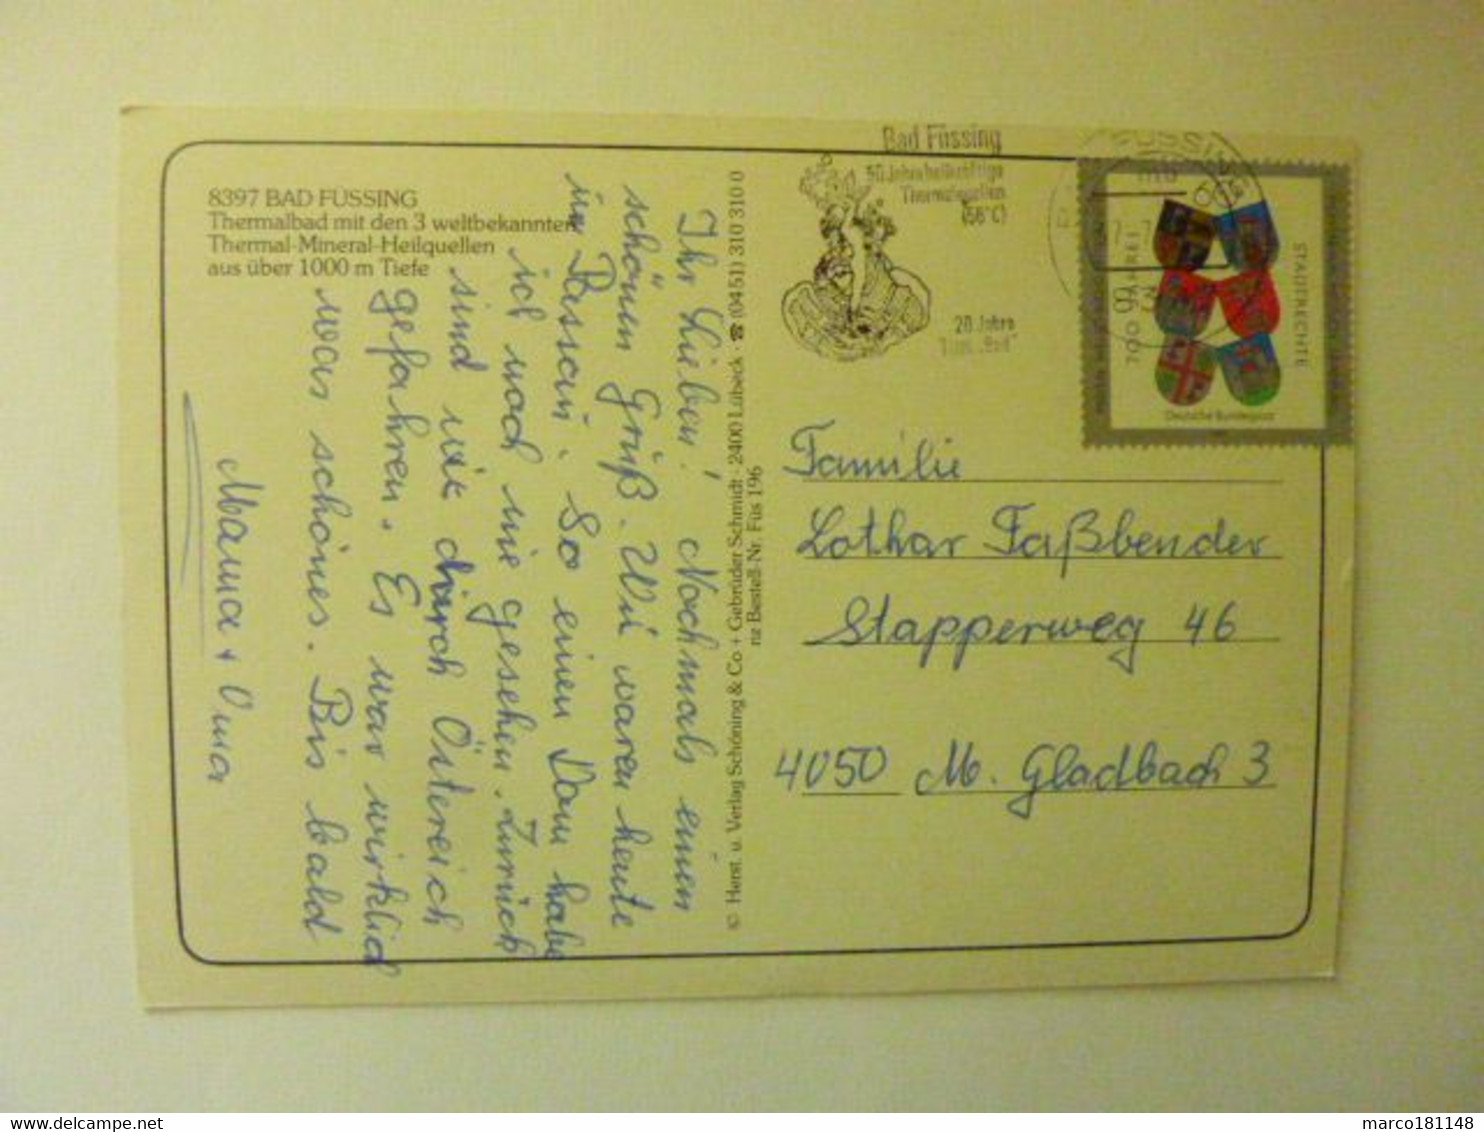 8397 BAD FÜSSING
Thermalbad mit den 3 weltbekannten
Thermal-Mineral-Heilquellen
aus über 1000 m Tiefe
Ihr Lieben! Nochmals einen
schönen Gruß. Wir waren heute
in Passau. So einen Dom habe
ich noch nie gesehen. Zurück
sind wir durch Östereich
gefahren. Es war wirklich
was schönes. Bis bald
Mama + Oma
© Herst. u. Verlag Schöning & Co + Gebrüder Schmidt · 2400 Lübeck · ☎ (0451) 310 310 0
nz Bestell-Nr. Füs 196
Bad Füssing
50 Jahre heilkräftige
Thermalquellen
(56°C)
20 Jahre
700 JAHRE
STADTRECHTE
Deutsche Bundespost
Familie
Lothar Faßbender
Stapperweg 46
4050 M. Gladbach 3
delcampe.net
marco181148